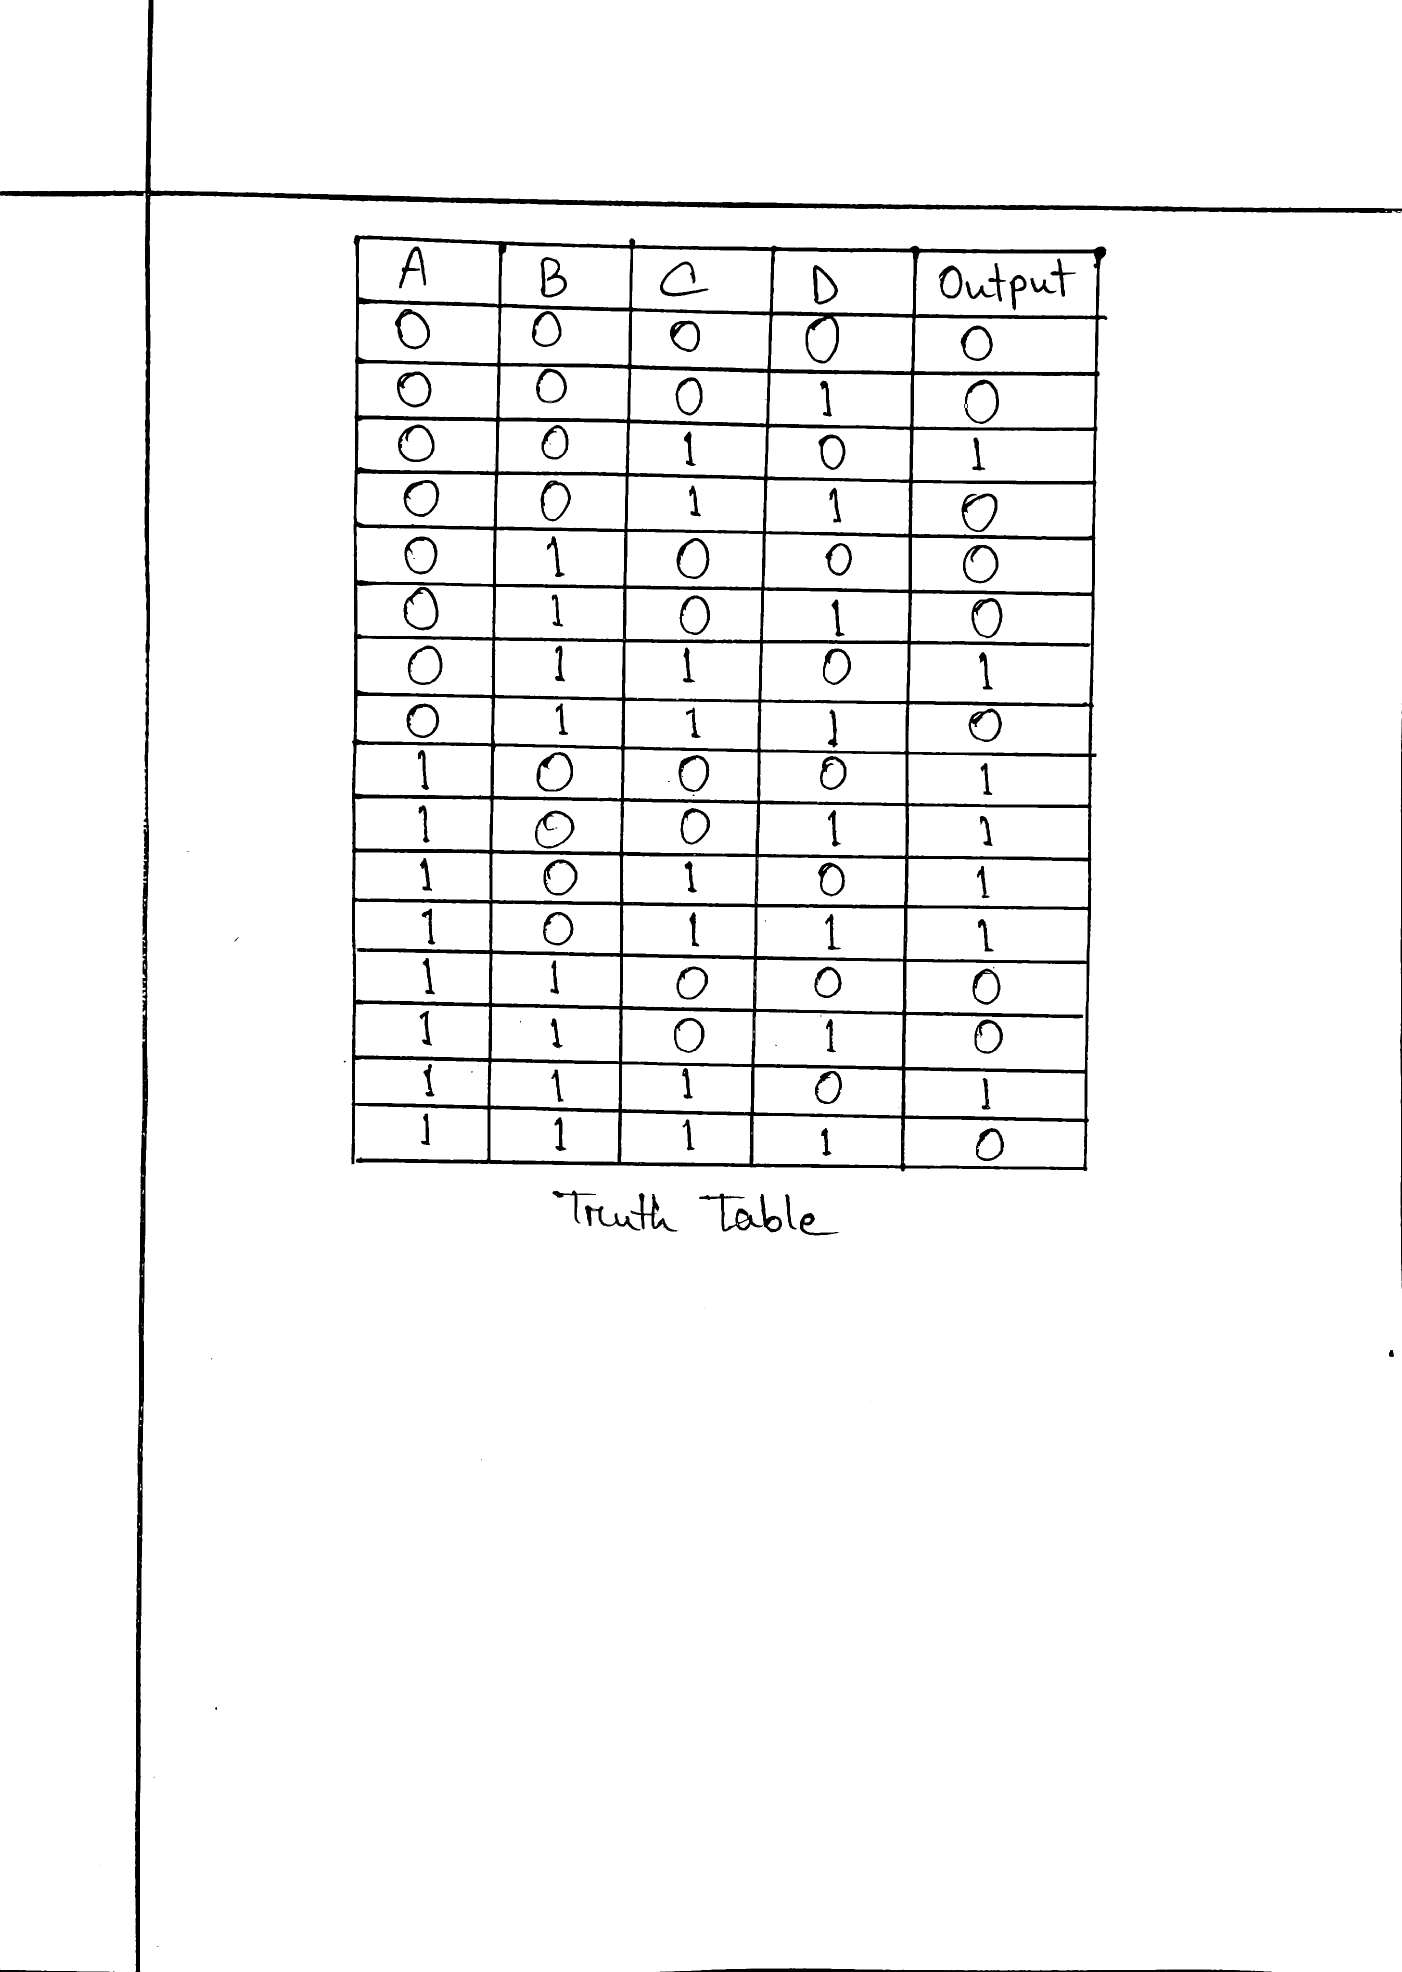 A B C D Output
0 0 0 0 0
0 0 0 1 0
0 0 1 0 1
0 0 1 1 0
0 1 0 0 0
0 1 0 1 0
0 1 1 0 1
0 1 1 1 0
1 0 0 0 1
1 0 0 1 1
1 0 1 0 1
1 0 1 1 1
1 1 0 0 0
1 1 0 1 0
1 1 1 0 1
1 1 1 1 0
Truth Table